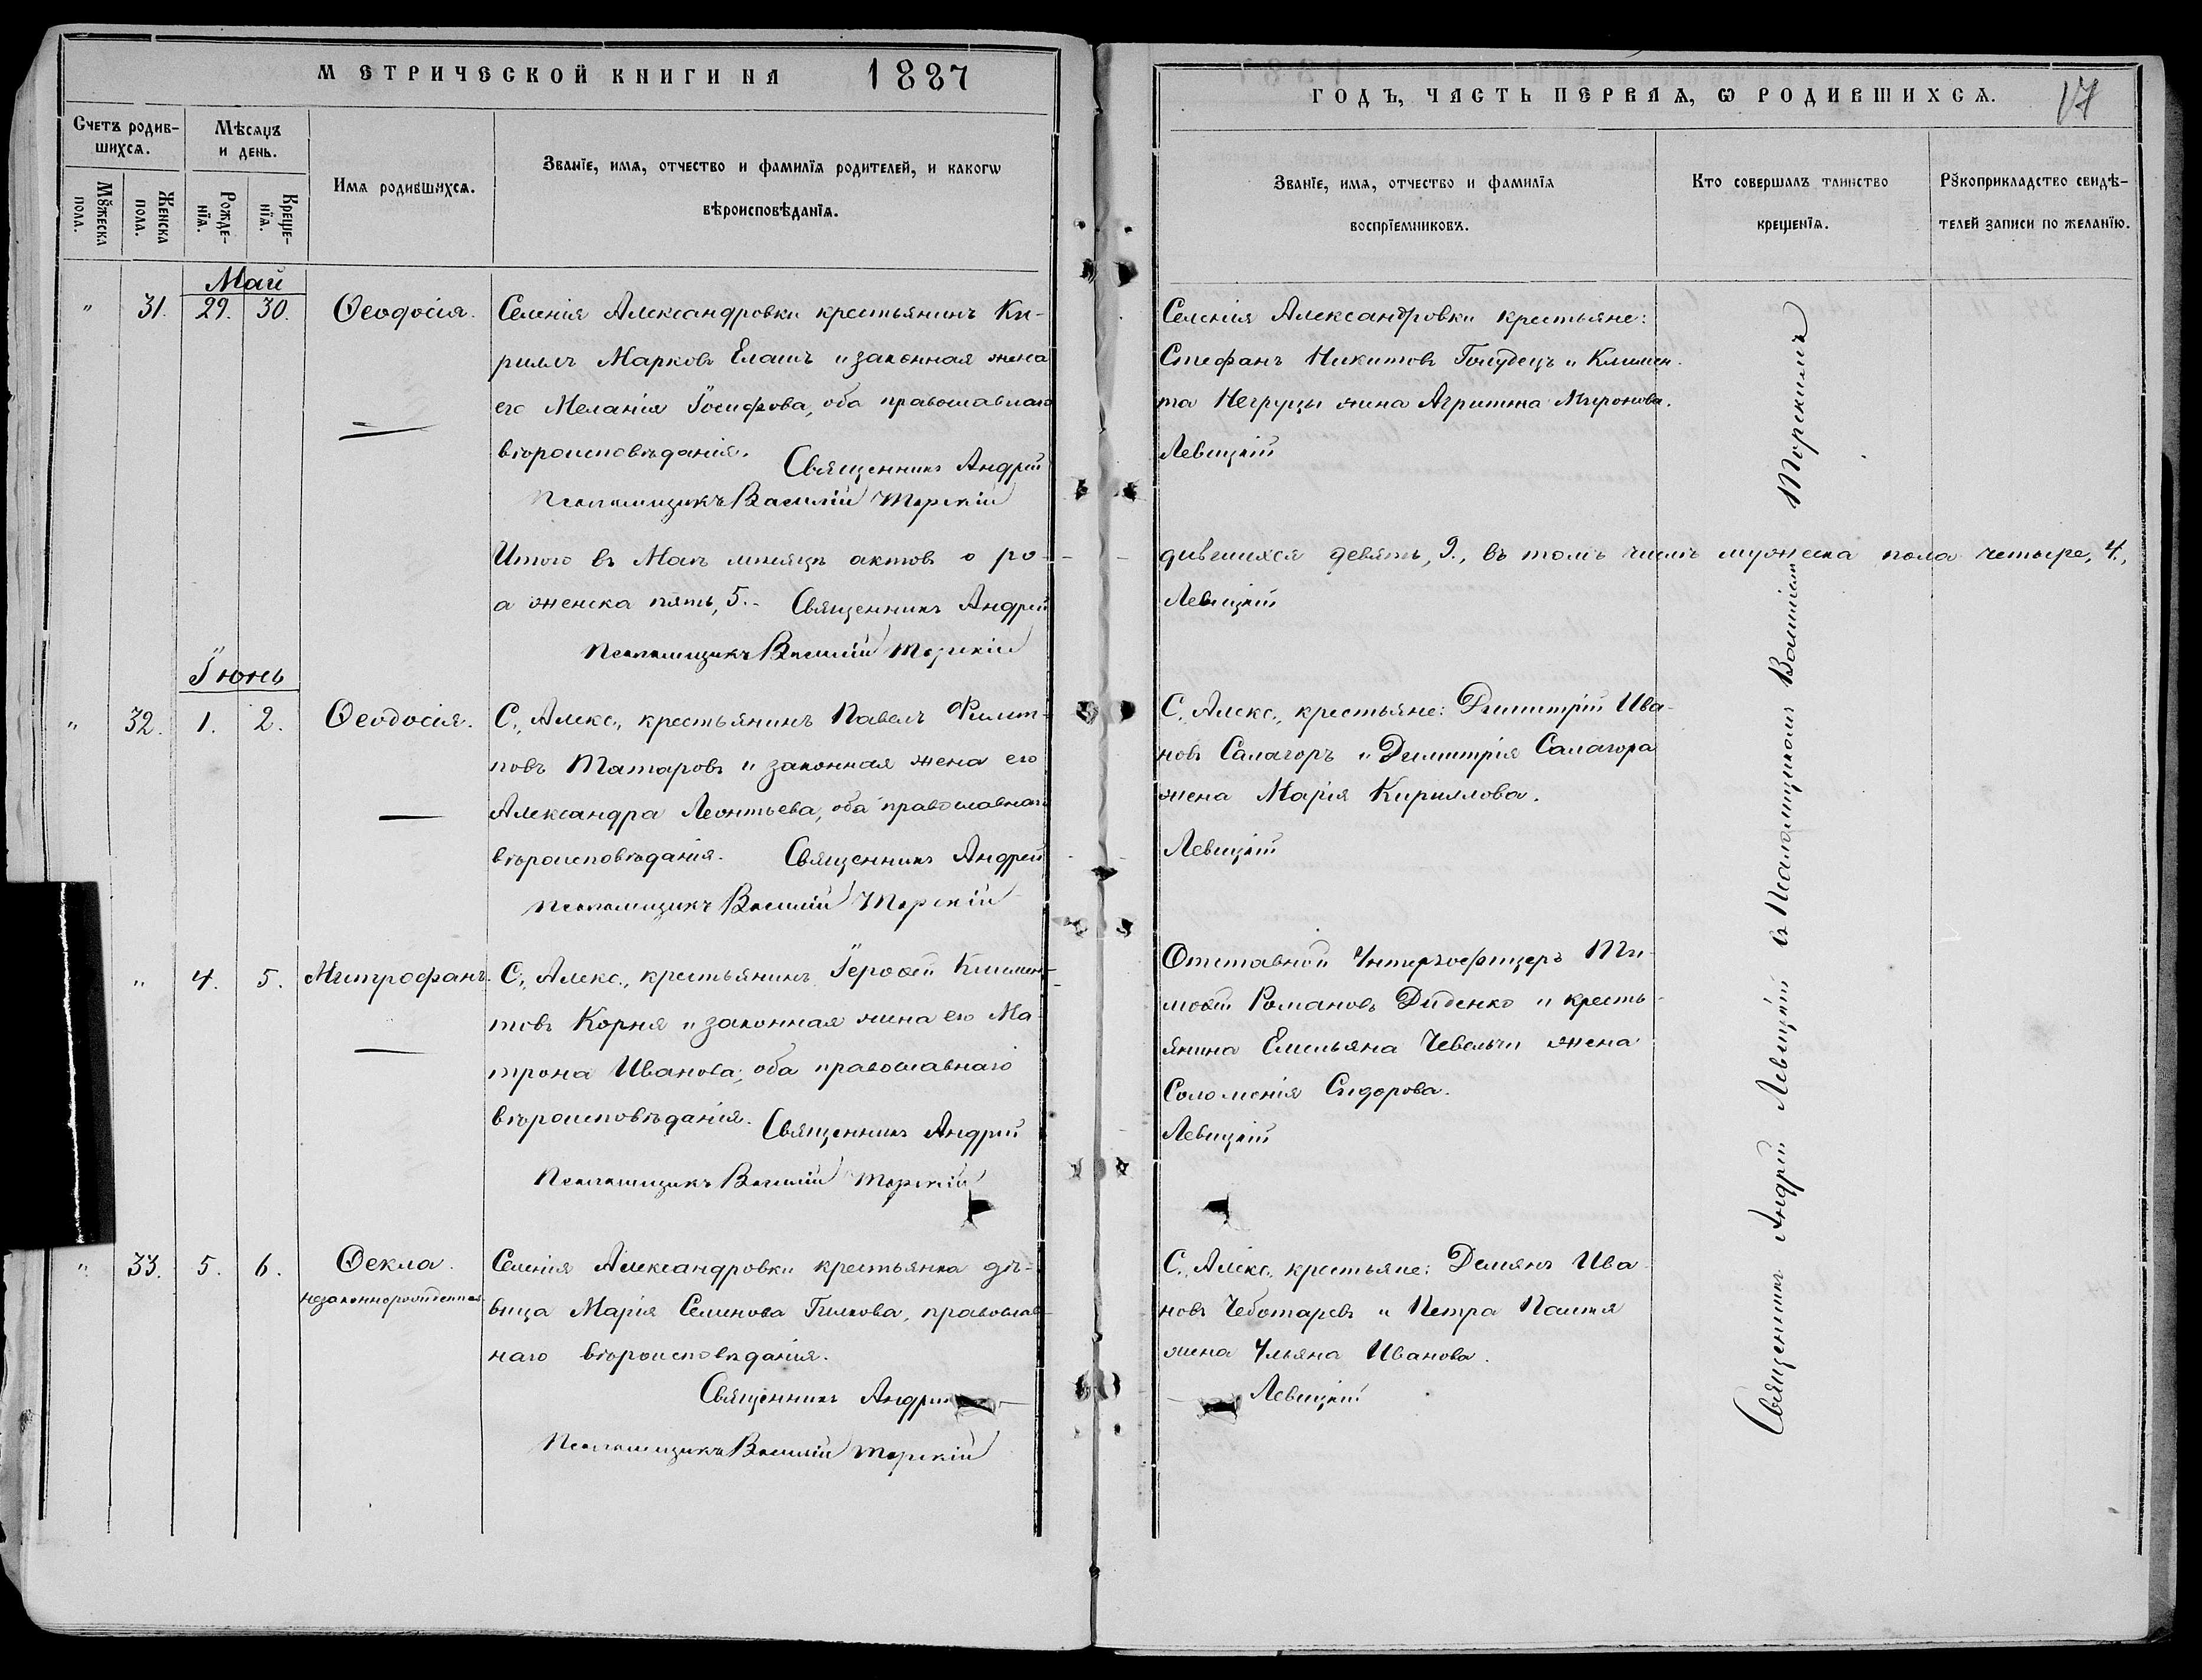 МЕТРИЧЕСКОЙ КНИГИ НА 1887
ГОДЪ, ЧАСТЬ ПЕРВАѦ, Ѡ РОДИВШИХСѦ. 17
Счетъ родив-
шихсѧ.
Мѣсѧцъ
и день.
Имѧ родившихсѧ.
Званїе, имѧ, отчество и фамилїѧ родителей, и какогѡ
вѣроисповѣданїѧ.
Мꙋжеска
пола.
Женска
пола.
Рожде-
нїѧ.
Креще-
нїѧ.
Званїе, имѧ, отчество и фамилїѧ
воспрїемниковъ.
Кто совершалъ таинство
крещенїѧ.
Рꙋкоприкладство свидѣ-
телей записи по желанїю.
Май
" 31. 29. 30. Ѳеодосія.
Селенія Александровки крестьянинъ Ки-
риллъ Марковъ Елашъ и законная жена
его Меланія Іосифова, оба православнаго
вѣроисповѣданія. Священникъ Андрей
Псаломщикъ Василій Торскій
Селенія Александровки крестьяне:
Стефанъ Никитовъ Голудецъ и Климен-
та Негруцы жена Агрипина Миронова.
Левицкій
Итого въ Маѣ мѣсяцѣ актовъ о ро-
дившихся девять, 9., въ томъ числѣ мужеска пола четыре, 4.,
а женска пять, 5.- Священникъ Андрей
Левицкій
Псаломщикъ Василій Торскій
Іюнь
" 32. 1. 2. Ѳеодосія.
С., Алекс., крестьянинъ Павелъ Филип-
повъ Татаровъ и законная жена его
Александра Леонтьева, оба православнаго
вѣроисповѣданія. Священникъ Андрей
Псаломщикъ Василій Торскій
С., Алекс., крестьяне: Димитрій Ива-
новъ Салагоръ и Димитрія Салагора
жена Марія Кириллова.
Левицкій
" 4. 5. Митрофанъ.
С., Алекс., крестьянинъ Іероѳей Климен-
товъ Корня и законная жена его Ма-
трона Иванова, оба православнаго
вѣроисповѣданія. Священникъ Андрей
Псаломщикъ Василій Торскій
Отставной Унтеръофицеръ Ти-
моѳей Романовъ Диденко и кресть-
янина Емельяна Чебельчи жена
Соломонія Сидорова.
Левицкій
" 33. 5. 6. Ѳекла.
незаконнорожденная
Селенія Александровки крестьянка дѣ-
вица Марія Семенова Гилкова, православ-
наго вѣроисповѣданія.
Священникъ Андрей
Псаломщикъ Василій Торскій
С., Алекс., крестьяне: Демянъ Ива-
новъ Чеботаревъ и Петра Паштя
жена Ульяна Иванова.
Левицкій
Священникъ Андрей Левицкій съ Псаломщикомъ Василіемъ Торскимъ